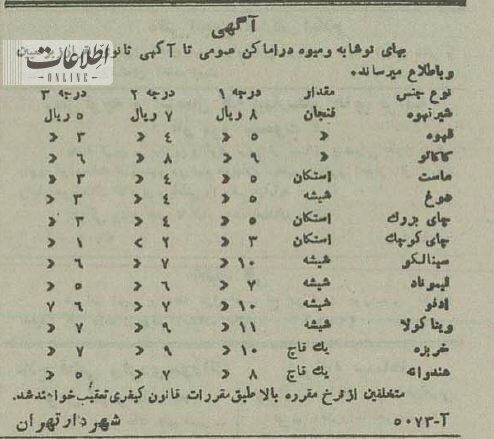 آگهی
بهای نوشابه و میوه در اماکن عمومی تا آگهی ثانوی
و باطلاع میرساند.
اطلاعات
ONLINE
نوع جنس مقدار درجه ۱ درجه ۲ درجه ۳
شیرقهوه فنجان ۸ ریال ۷ ریال ۵ ریال
قهوه » ۵ » ۴ » ۳ »
کاکائو » ۹ » ۸ » ۶ »
ماست استکان ۵ » ۴ » ۳ »
دوغ شیشه ۵ » ۴ » ۳ »
چای بزرك استکان ۵ » ۴ » ۳ »
چای کوچك استکان ۳ » ۲ > ۱ »
سینالکو شیشه ۱۰ » ۷ » ۶ »
لیموناد شیشه ۷ » ۶ » ۵ »
ادفو شیشه ۱۰ » ۷ » ۶ ۷
ویتاکولا شیشه ۱۱ » ۹ » ۷ »
خربزه یك قاچ ۱۰ » ۹ » ۷ »
هندوانه یك قاچ ۸ » ۷ » ۵ »
متخلفین از نرخ مقرره بالا طبق مقررات قانون کیفری تعقیب خواهند شد.
آ-۵۰۷۳ شهردار تهران